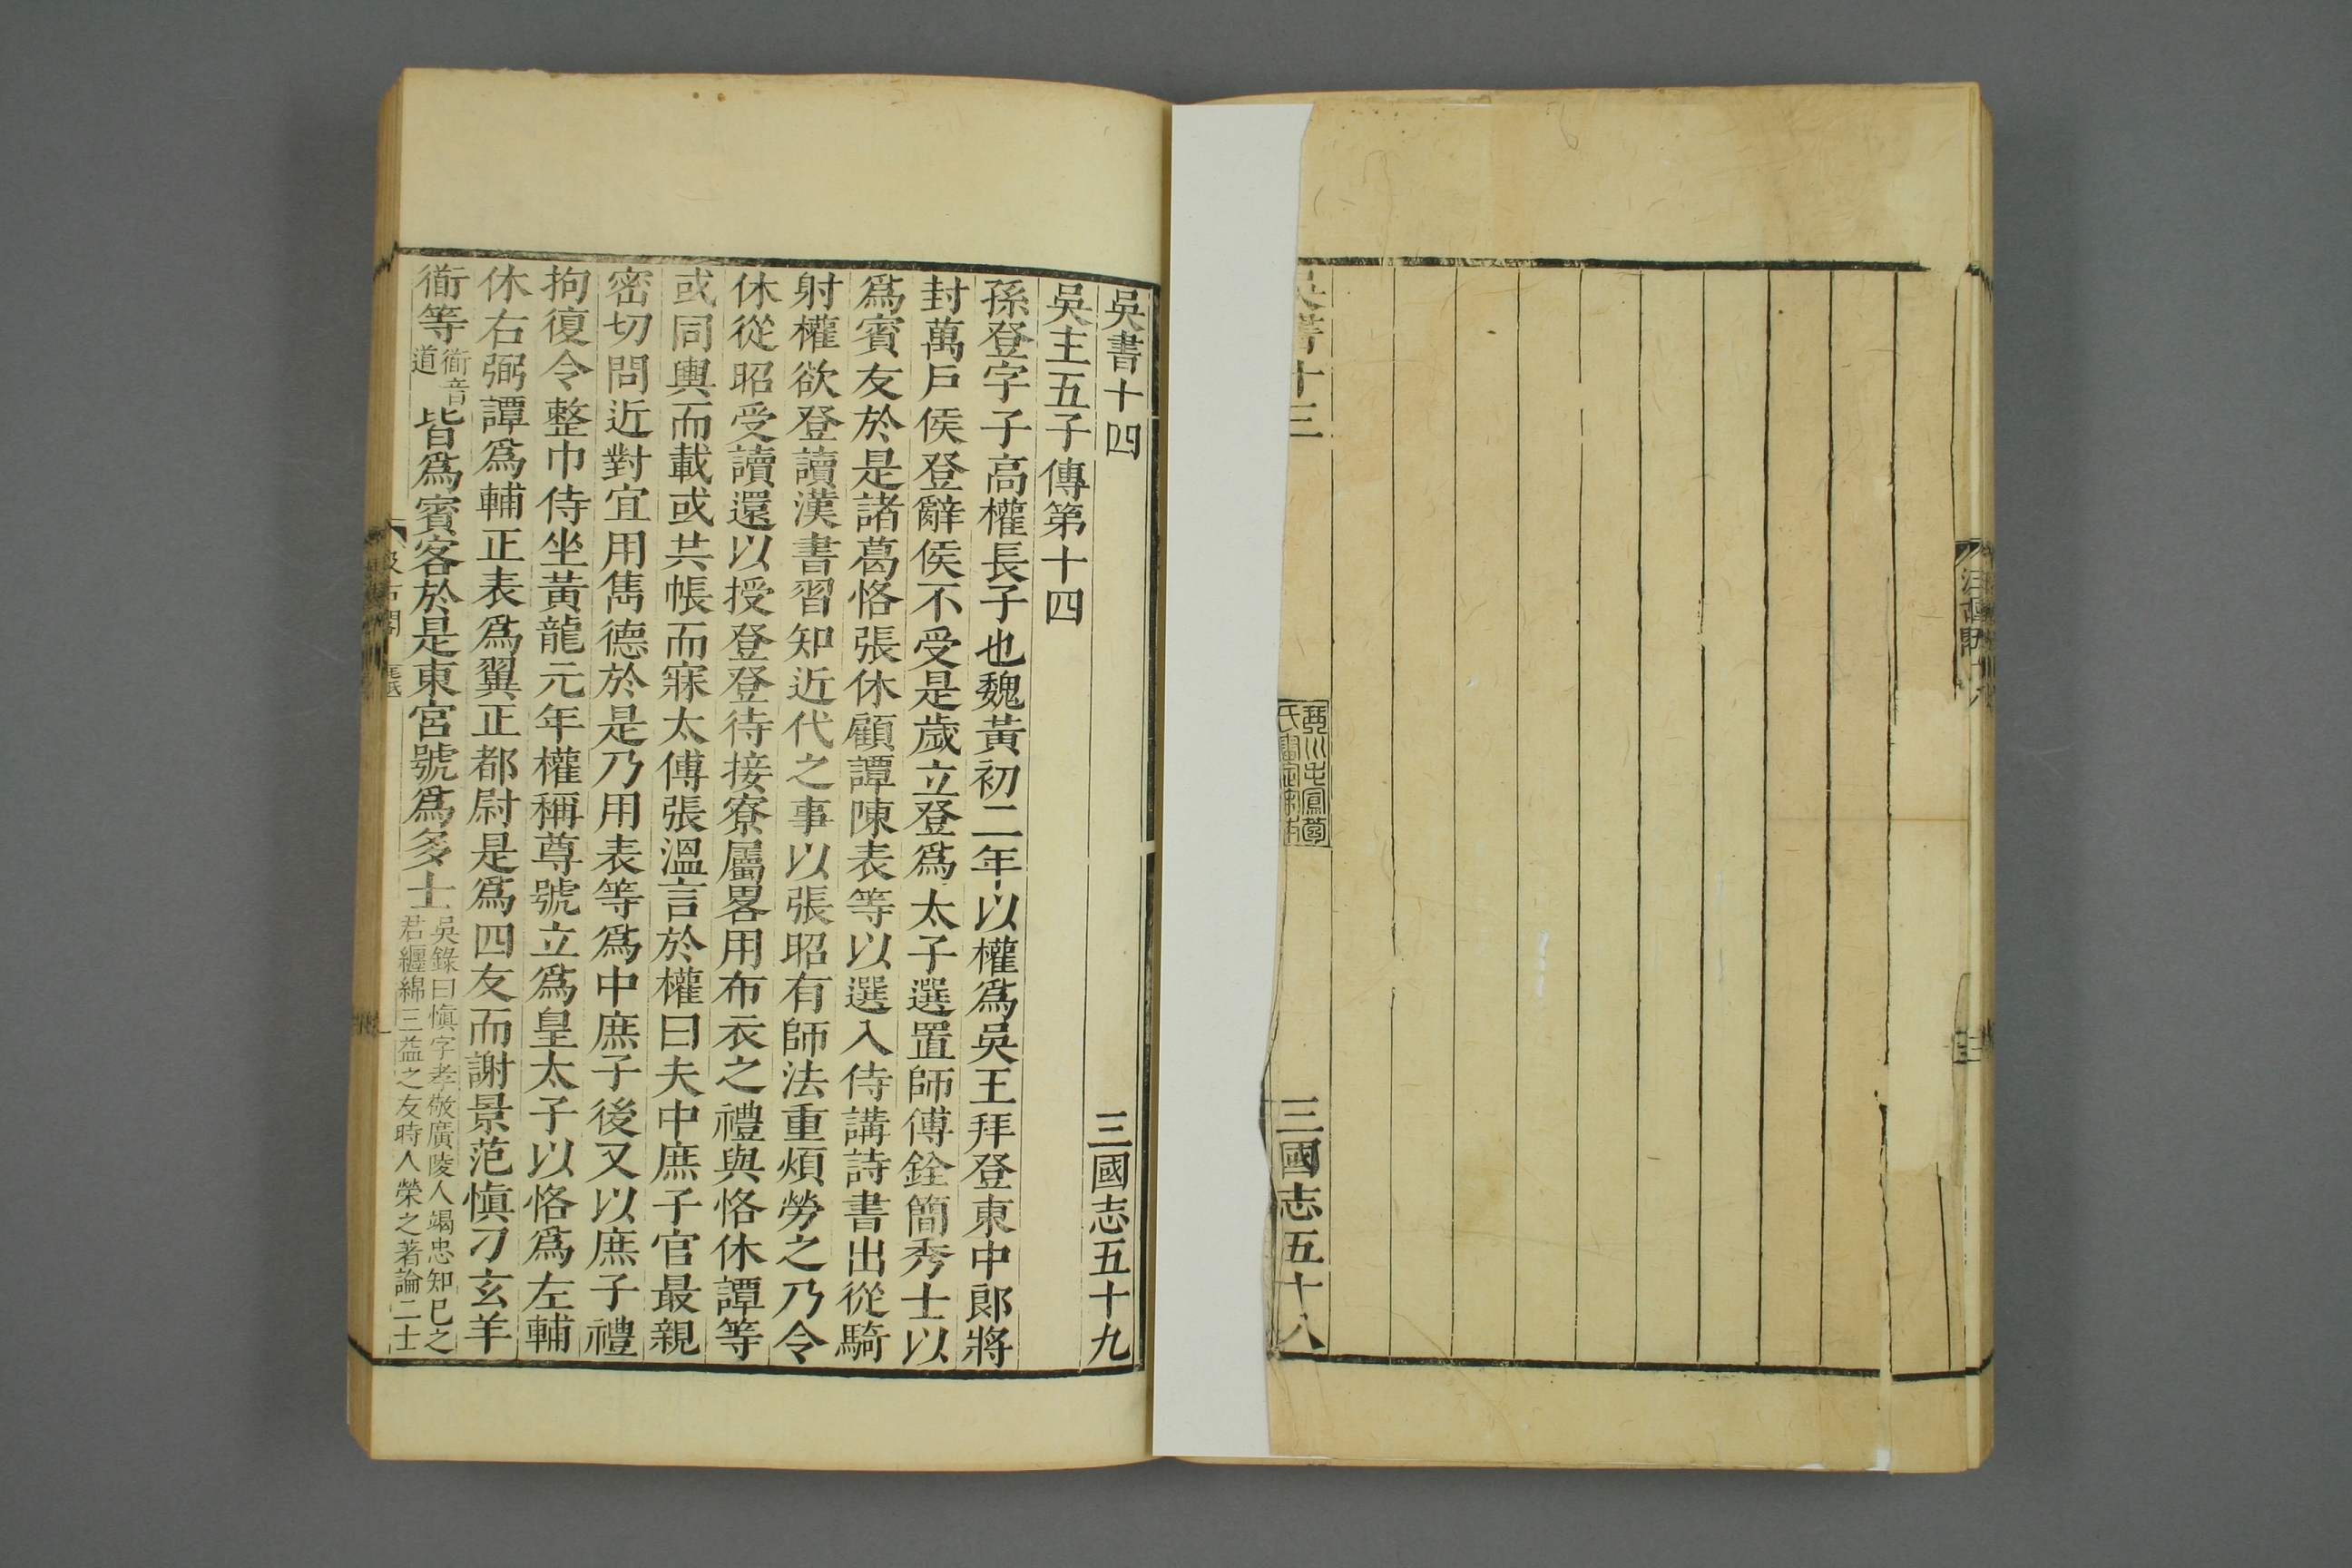 十三 三國志五十八
吳書十四 三國志五十九
吳主五子傳第十四
孫登字子高權長子也魏黃初二年以權爲吳王拜登東中郎將
封萬戶侯登辭侯不受是歲立登爲太子選置師傅銓簡秀士以
爲賓友於是諸葛恪張休顧譚陳表等以選入侍講詩書出從騎
射權欲登讀漢書習知近代之事以張昭有師法重煩勞之乃令
休從昭受讀還以授登登待接寮屬畧用布衣之禮與恪休譚等
或同輿而載或共帳而寐太傅張溫言於權曰夫中庶子官最親
密切問近對宜用雋德於是乃用表等爲中庶子後又以庶子禮
拘復令整巾侍坐黃龍元年權稱尊號立爲皇太子以恪爲左輔
休右弼譚爲輔正表爲翼正都尉是爲四友而謝景范愼刁玄羊
衜等衜音道皆爲賓客於是東宮號爲多士吳錄曰愼字孝敬廣陵人竭忠知已之君纒綿三益之友時人榮之著論二士